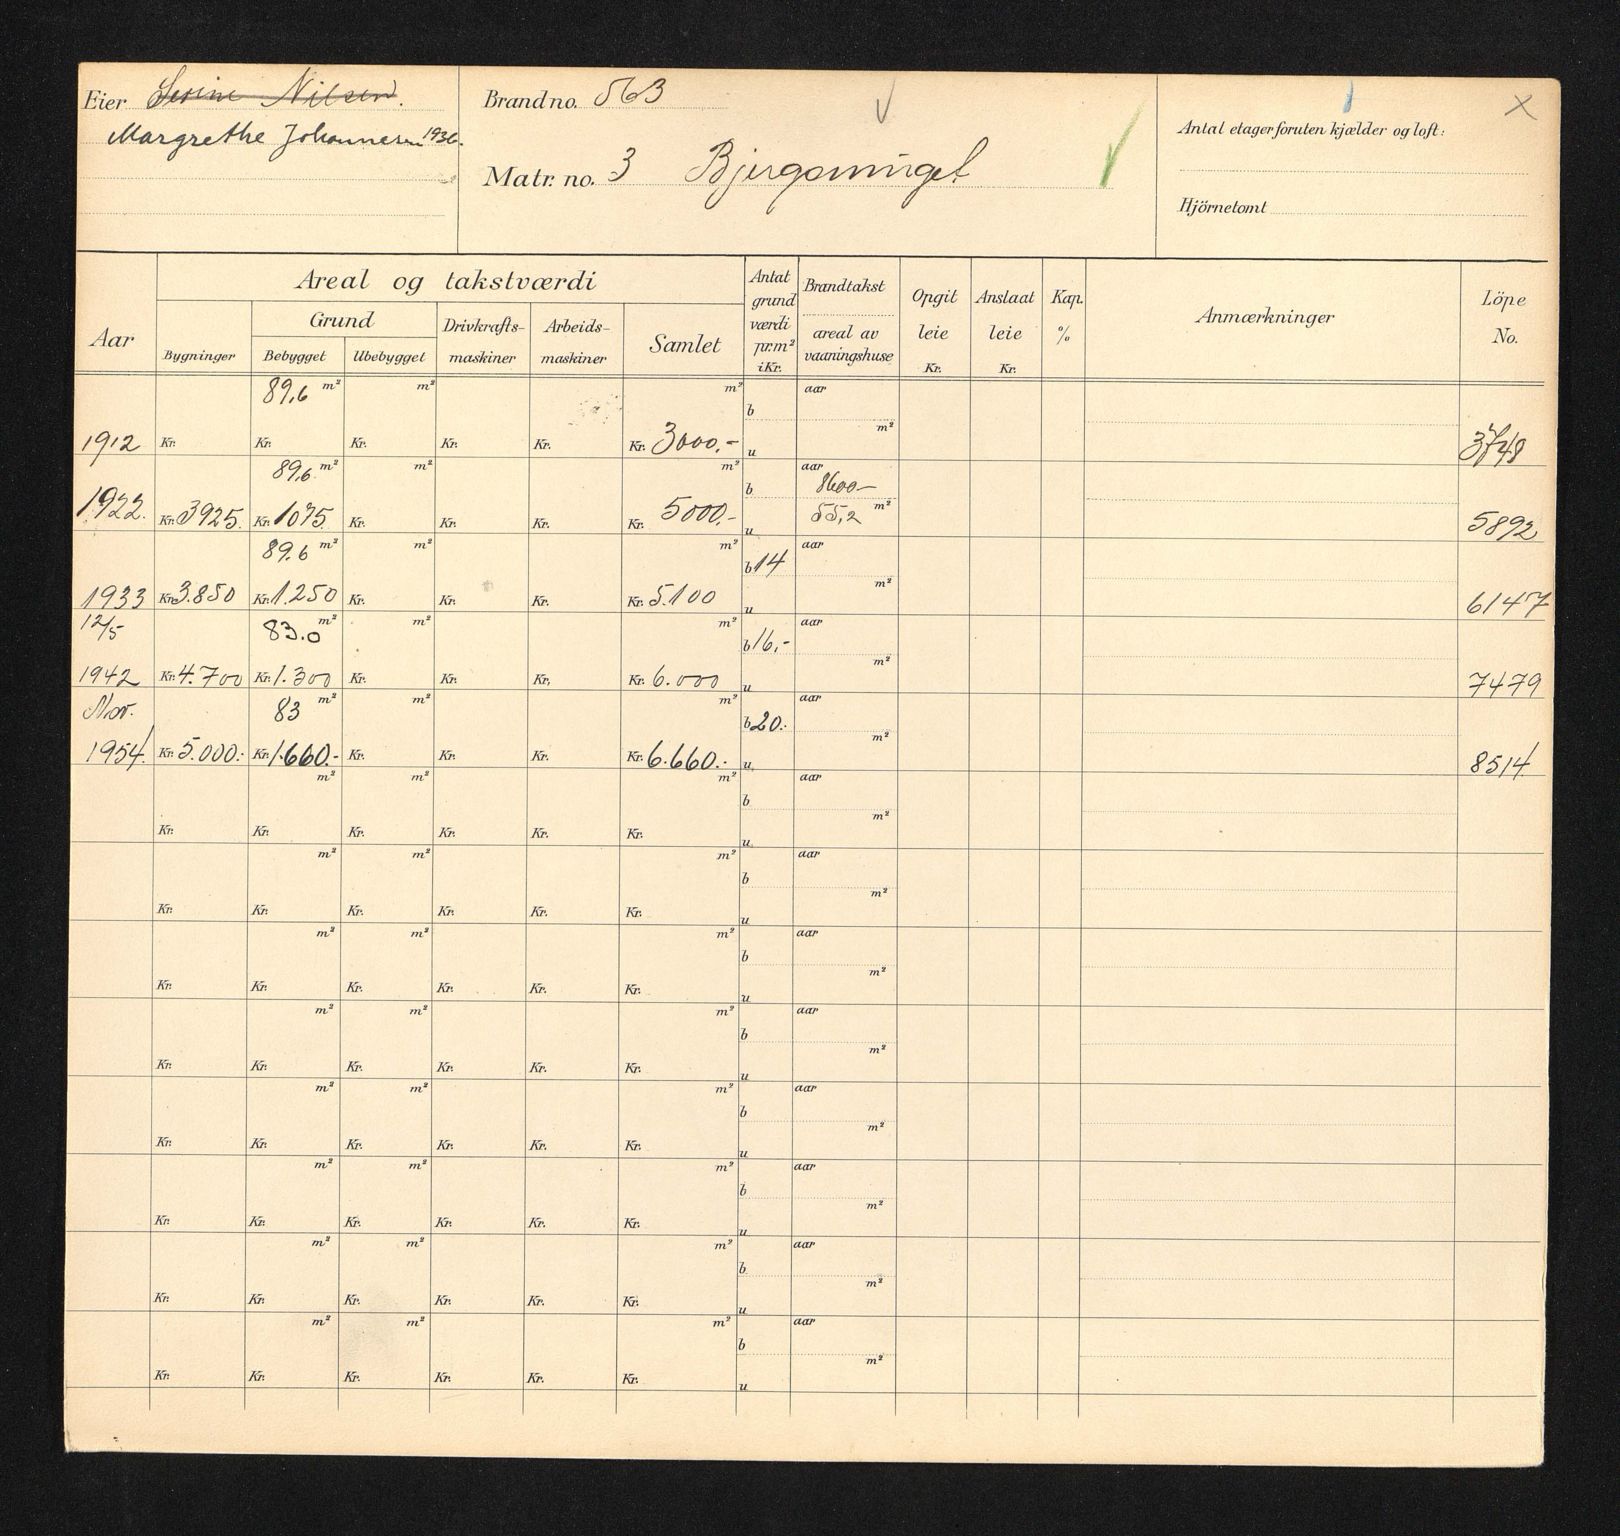 Eier Serine Nilsen.
Margrethe Johannesen 1936.
Brand no. 563
Matr. no. 3 Bjergsmuget
Antal etager foruten kjælder og loft:
Hjörnetomt
Aar
Areal og takstværdi
Bygninger
Grund
Bebygget Ubebygget
Drivkrafts-
maskiner
Arbeids-
maskiner
Samlet
Antat
grund
værdi
pr.m²
i Kr.
Brandtakst
areal av
vaaningshuse
Opgit
leie
Kr.
Anslaat
leie
Kr.
Kap.
%
Anmærkninger
Löpe
No.
89,6 m² m² m² b aar
m²
1912 Kr. Kr. Kr. Kr. Kr. Kr. 3000,- u 3748
89,6 m² m² m² b aar
8600-
55,2 m²
1922. Kr. 3925. Kr. 1075. Kr. Kr. Kr. Kr. 5000,- u 5892
89.6 m² m² m² b 14 aar
m²
1933 Kr. 3.850 Kr. 1.250 Kr. Kr. Kr. Kr. 5.100 u 6147
12/5 83.0 m² m² m² b 16,- aar
m²
1942 Kr. 4.700 Kr. 1.300 Kr. Kr. Kr. Kr. 6.000 u 7479
Nov. 83 m² m² m² b 20.- aar
m²
1954. Kr. 5.000.- Kr. 1.660.- Kr. Kr. Kr. Kr. 6.660.- u 8514
m² m² m² b aar
m²
Kr. Kr. Kr. Kr. Kr. Kr. u
m² m² m² b aar
m²
Kr. Kr. Kr. Kr. Kr. Kr. u
m² m² m² b aar
m²
Kr. Kr. Kr. Kr. Kr. Kr. u
m² m² m² b aar
m²
Kr. Kr. Kr. Kr. Kr. Kr. u
m² m² m² b aar
m²
Kr. Kr. Kr. Kr. Kr. Kr. u
m² m² m² b aar
m²
Kr. Kr. Kr. Kr. Kr. Kr. u
m² m² m² b aar
m²
Kr. Kr. Kr. Kr. Kr. Kr. u
m² m² m² b aar
m²
Kr. Kr. Kr. Kr. Kr. Kr. u